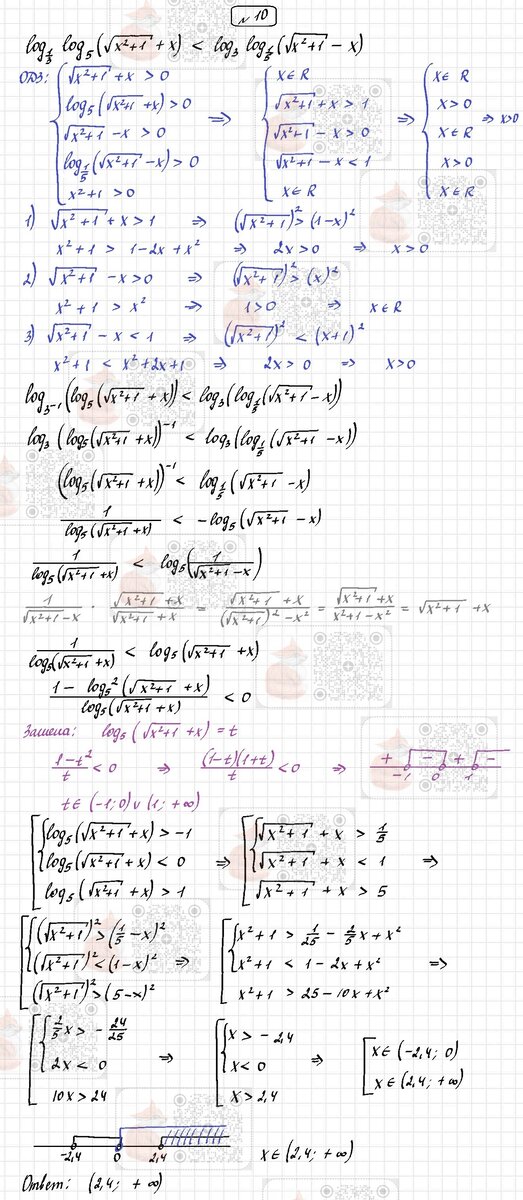 № 10
log_{1/3} log_5(√(x²+1) + x) < log_3 log_{1/5}(√(x²+1) - x)
ОДЗ: { √(x²+1) + x > 0 ; log_5(√(x²+1) + x) > 0 ; √(x²+1) - x > 0 ; log_{1/5}(√(x²+1) - x) > 0 ; x²+1 > 0 ⇒ { x ∈ R ; √(x²+1) + x > 1 ; √(x²+1) - x > 0 ; √(x²+1) - x < 1 ; x ∈ R ⇒ { x ∈ R ; x > 0 ; x ∈ R ; x > 0 ; x ∈ R ⇒ x>0
1) √(x²+1) + x > 1 ⇒ (√(x²+1))² > (1-x)²
x²+1 > 1-2x+x² ⇒ 2x > 0 ⇒ x > 0
2) √(x²+1) - x > 0 ⇒ (√(x²+1))² > (x)²
x²+1 > x² ⇒ 1 > 0 ⇒ x ∈ R
3) √(x²+1) - x < 1 ⇒ (√(x²+1))² < (x+1)²
x²+1 < x²+2x+1 ⇒ 2x > 0 ⇒ x > 0
log_{3^{-1}}(log_5(√(x²+1) + x)) < log_3(log_{1/5}(√(x²+1) - x))
log_3(log_5(√(x²+1) + x))^{-1} < log_3(log_{1/5}(√(x²+1) - x))
(log_5(√(x²+1) + x))^{-1} < log_{1/5}(√(x²+1) - x)
1/log_5(√(x²+1) + x) < -log_5(√(x²+1) - x)
1/log_5(√(x²+1) + x) < log_5(1/(√(x²+1) - x))
1/(√(x²+1) - x) · (√(x²+1) + x)/(√(x²+1) + x) = (√(x²+1) + x)/((√(x²+1))² - x²) = (√(x²+1) + x)/(x²+1-x²) = √(x²+1) + x
1/log_5(√(x²+1) + x) < log_5(√(x²+1) + x)
(1 - log_5²(√(x²+1) + x))/log_5(√(x²+1) + x) < 0
Замена: log_5(√(x²+1) + x) = t
(1-t²)/t < 0 ⇒ (1-t)(1+t)/t < 0 ⇒ + - + -
-1 0 1
t ∈ (-1; 0) ∪ (1; +∞)
[ { log_5(√(x²+1) + x) > -1 ; log_5(√(x²+1) + x) < 0 ; log_5(√(x²+1) + x) > 1 ⇒ [ { √(x²+1) + x > 1/5 ; √(x²+1) + x < 1 ; √(x²+1) + x > 5 ⇒
[ { (√(x²+1))² > (1/5 - x)² ; (√(x²+1))² < (1-x)² ; (√(x²+1))² > (5-x)² ⇒ [ { x²+1 > 1/25 - 2/5x + x² ; x²+1 < 1-2x+x² ; x²+1 > 25-10x+x² ⇒
[ { 2/5x > -24/25 ; 2x < 0 ; 10x > 24 ⇒ [ { x > -2,4 ; x < 0 ; x > 2,4 ⇒ [ x ∈ (-2,4; 0) ; x ∈ (2,4; +∞)
-2,4 0 2,4 x ∈ (2,4; +∞)
Ответ: (2,4; +∞)